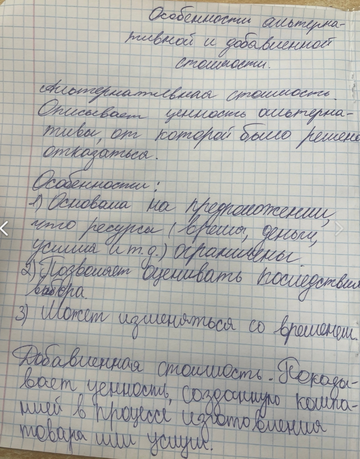 Особенности альтерна-
тивной и добавленной
стоимости.
Альтернативная стоимость
Описывает ценность альтерна-
тивы, от которой было решено
отказаться.
Особенности:
1) Основана на предположении,
что ресурсы (время, деньги,
усилия и т.д.) ограничены.
2) Позволяет оценивать последствия
выбора
3) Может изменяться со временем.
Добавленная стоимость. Показы-
вает ценность, созданную компа-
нией в процессе изготовления
товара или услуги.